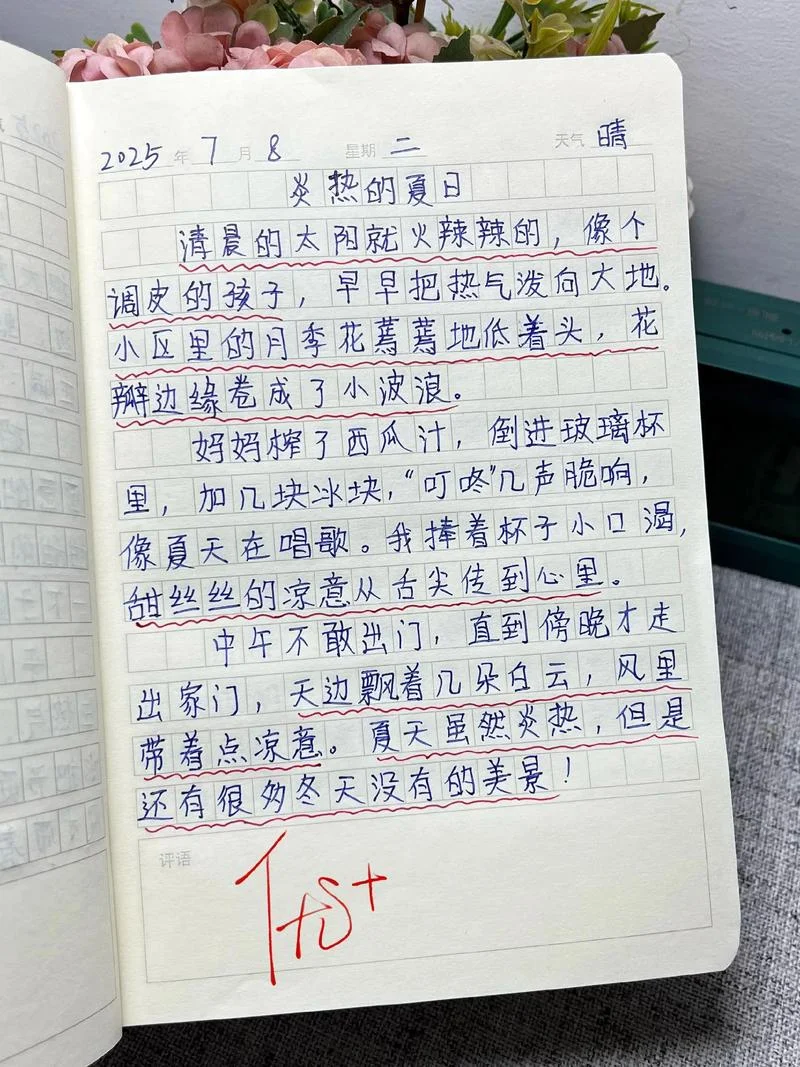 2025年 7月 8 星期二 天气 晴
炎热的夏日
清晨的太阳就火辣辣的，像个
调皮的孩子，早早把热气泼向大地。
小区里的月季花蔫蔫地低着头，花
瓣边缘卷成了小波浪。
妈妈榨了西瓜汁，倒进玻璃杯
里，加几块冰块，“叮咚”几声脆响，
像夏天在唱歌。我捧着杯子小口渴，
甜丝丝的凉意从舌尖传到心里。
中午不敢出门，直到傍晚才走
出家门，天边飘着几朵白云，风里
带着点凉意。夏天虽然炎热，但是
还有很多冬天没有的美景！
评语
优+